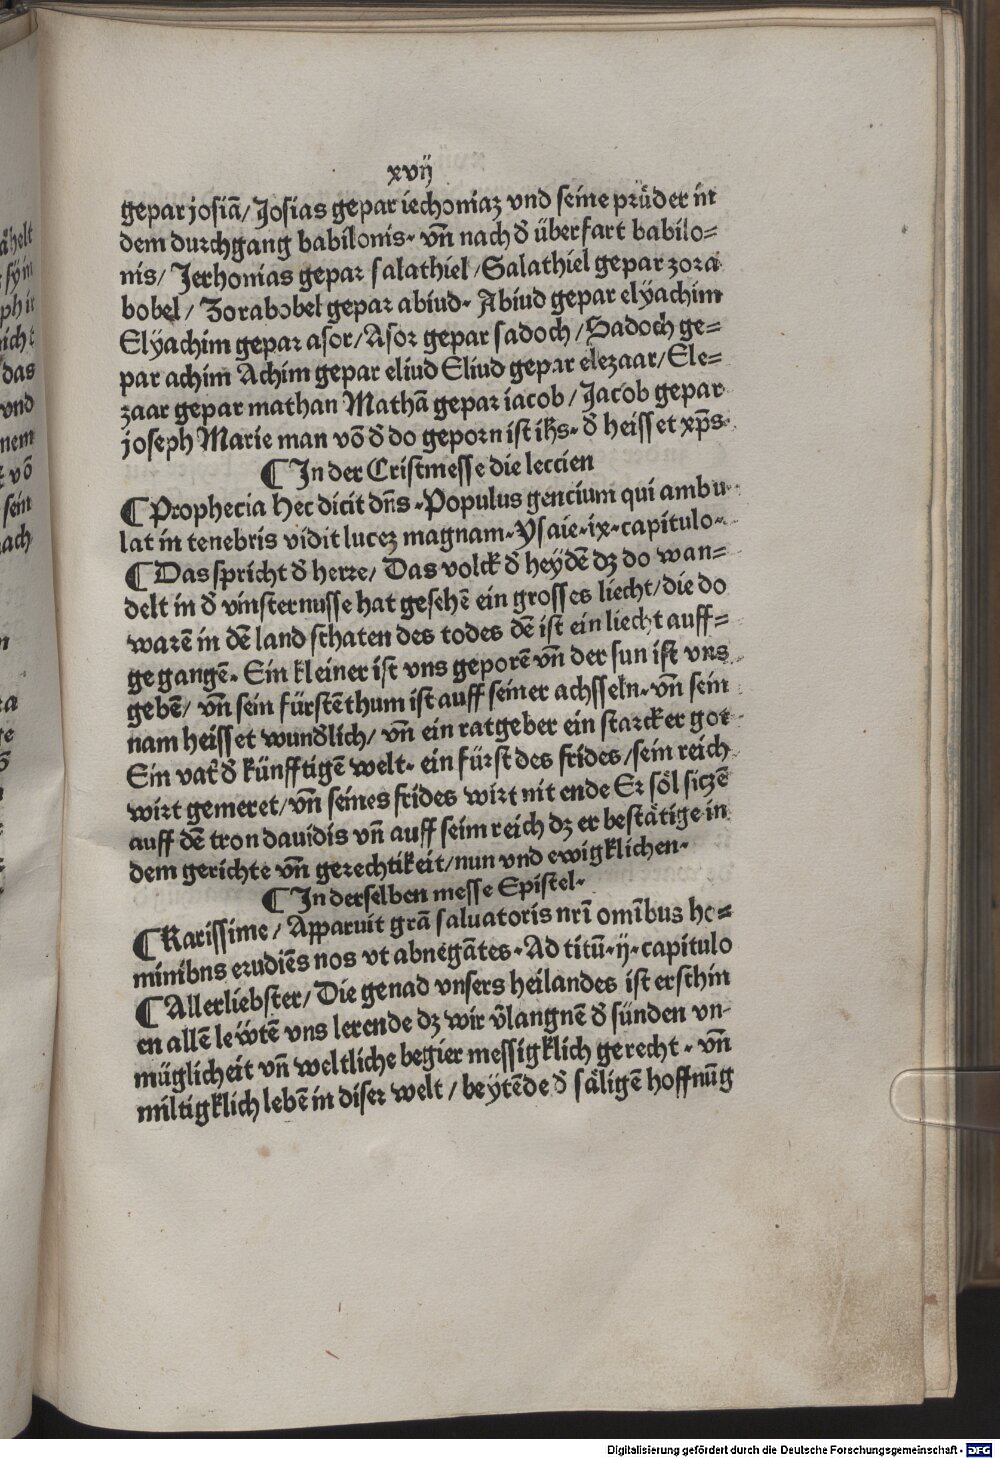 xvij
gepar josiā/ Josias gepar iechoniaz vnd seine prüder in
dem durchgang babilonis. vn̄ nach d̄ überfart babilo=
nis/ Jechonias gepar salathiel/ Salathiel gepar zora
bobel/ Zorabobel gepar abiud. Abiud gepar elyachim
Elyachim gepar asor/ Asor gepar sadoch/ Sadoch ge=
par achim Achim gepar eliud Eliud gepar elezaar/ Ele=
zaar gepar mathan Mathā gepar iacob/ Jacob gepar
joseph Marie man vō d̄ do geporn ist ihs. d̄ heisset xp̄s.
¶ In der Cristmesse die leccien
¶ Prophecia Hec dicit dn̄s. Populus gencium qui ambu
lat in tenebris vidit lucez magnam. Ysaie. ix. capitulo.
¶ Das spricht d̄ herre/ Das volck d̄ heydē dz do wan=
delt in d̄ vinsternusse hat gesehē ein grosses liecht/ die do
warē in dē land schaten des todes dē ist ein liecht auff=
gegangē. Ein kleiner ist vns geporē vn̄ der sun ist vns
gebē/ vn̄ sein fürstēthum ist auff seiner achsseln. vn̄ sein
nam heisset wund̄lich/ vn̄ ein ratgeber ein starcker got
Ein vat̄ d̄ künfftigē welt. ein fürst des frides/ sein reich
wirt gemeret/ vn̄ seines frides wirt nit ende Er söl siczē
auff dē tron dauidis vn̄ auff seim reich dz er bestätige in
dem gerichte vn̄ gerechtikeit/ nun vnd ewigklichen.
¶ In derselben messe Epistel.
¶ Karissime/ Apparuit grā saluatoris nr̄i omībus ho=
minibns erudiēs nos vt abnegātes. Ad titū. ij. capitulo
¶ Allerliebster/ Die genad vnsers heilandes ist erschin
en allē lewtē vns lerende dz wir v̄langnē d̄ sünden vn-
müglicheit vn̄ weltliche begier messigklich gerecht. vn̄
miltigklich lebē in diser welt/ beytēde d̄ säligē hoffnūg
Digitalisierung gefördert durch die Deutsche Forschungsgemeinschaft - DFG